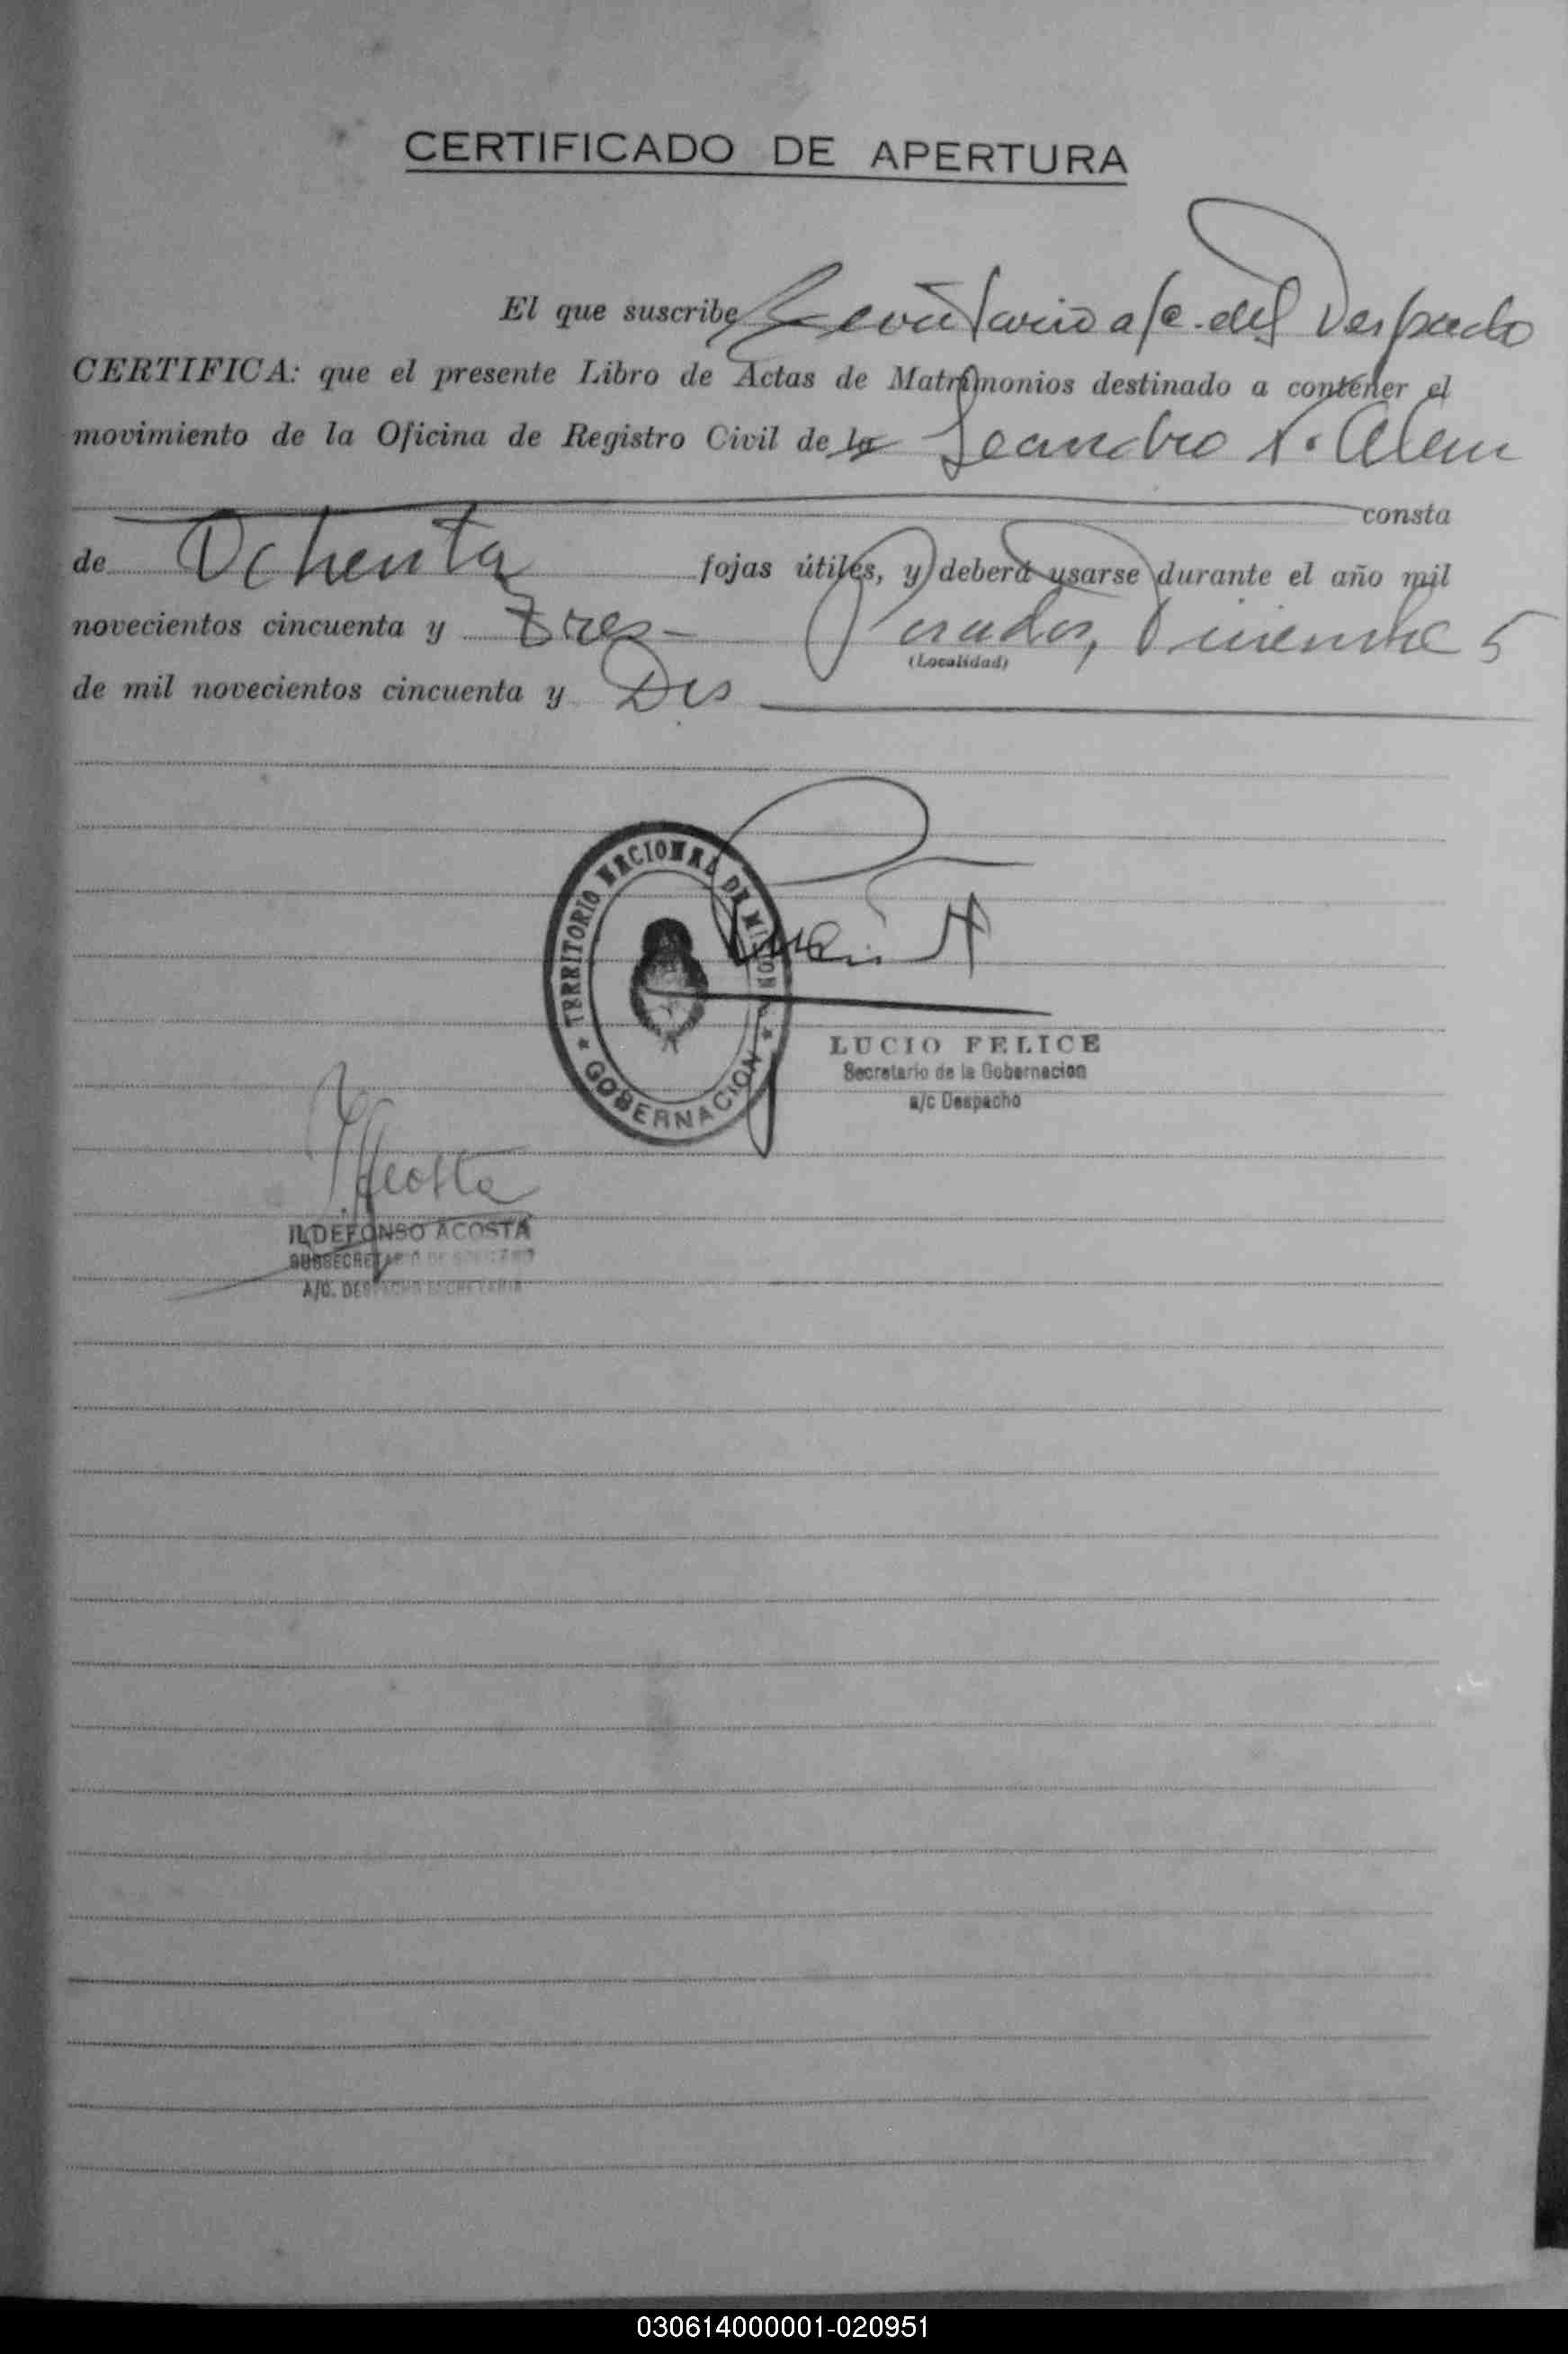 CERTIFICADO DE APERTURA
El que suscribe Secretario a/c. del Despacho
CERTIFICA: que el presente Libro de Actas de Matrimonios destinado a contener el
movimiento de la Oficina de Registro Civil de la Leandro N. Alem
consta
de Ochenta fojas útiles, y deberá usarse durante el año mil
novecientos cincuenta y tres Posadas, Diciembre 5
(Localidad)
de mil novecientos cincuenta y Dos
TERRITORIO NACIONAL DE MISIONES
GOBERNACION
LUCIO FELICE
Secretario de la Gobernacion
a/c Despacho
Acosta
ILDEFONSO ACOSTA
SUBSECRETARIO DE
A/C. DESPACHO SECRETARIA
030614000001-020951